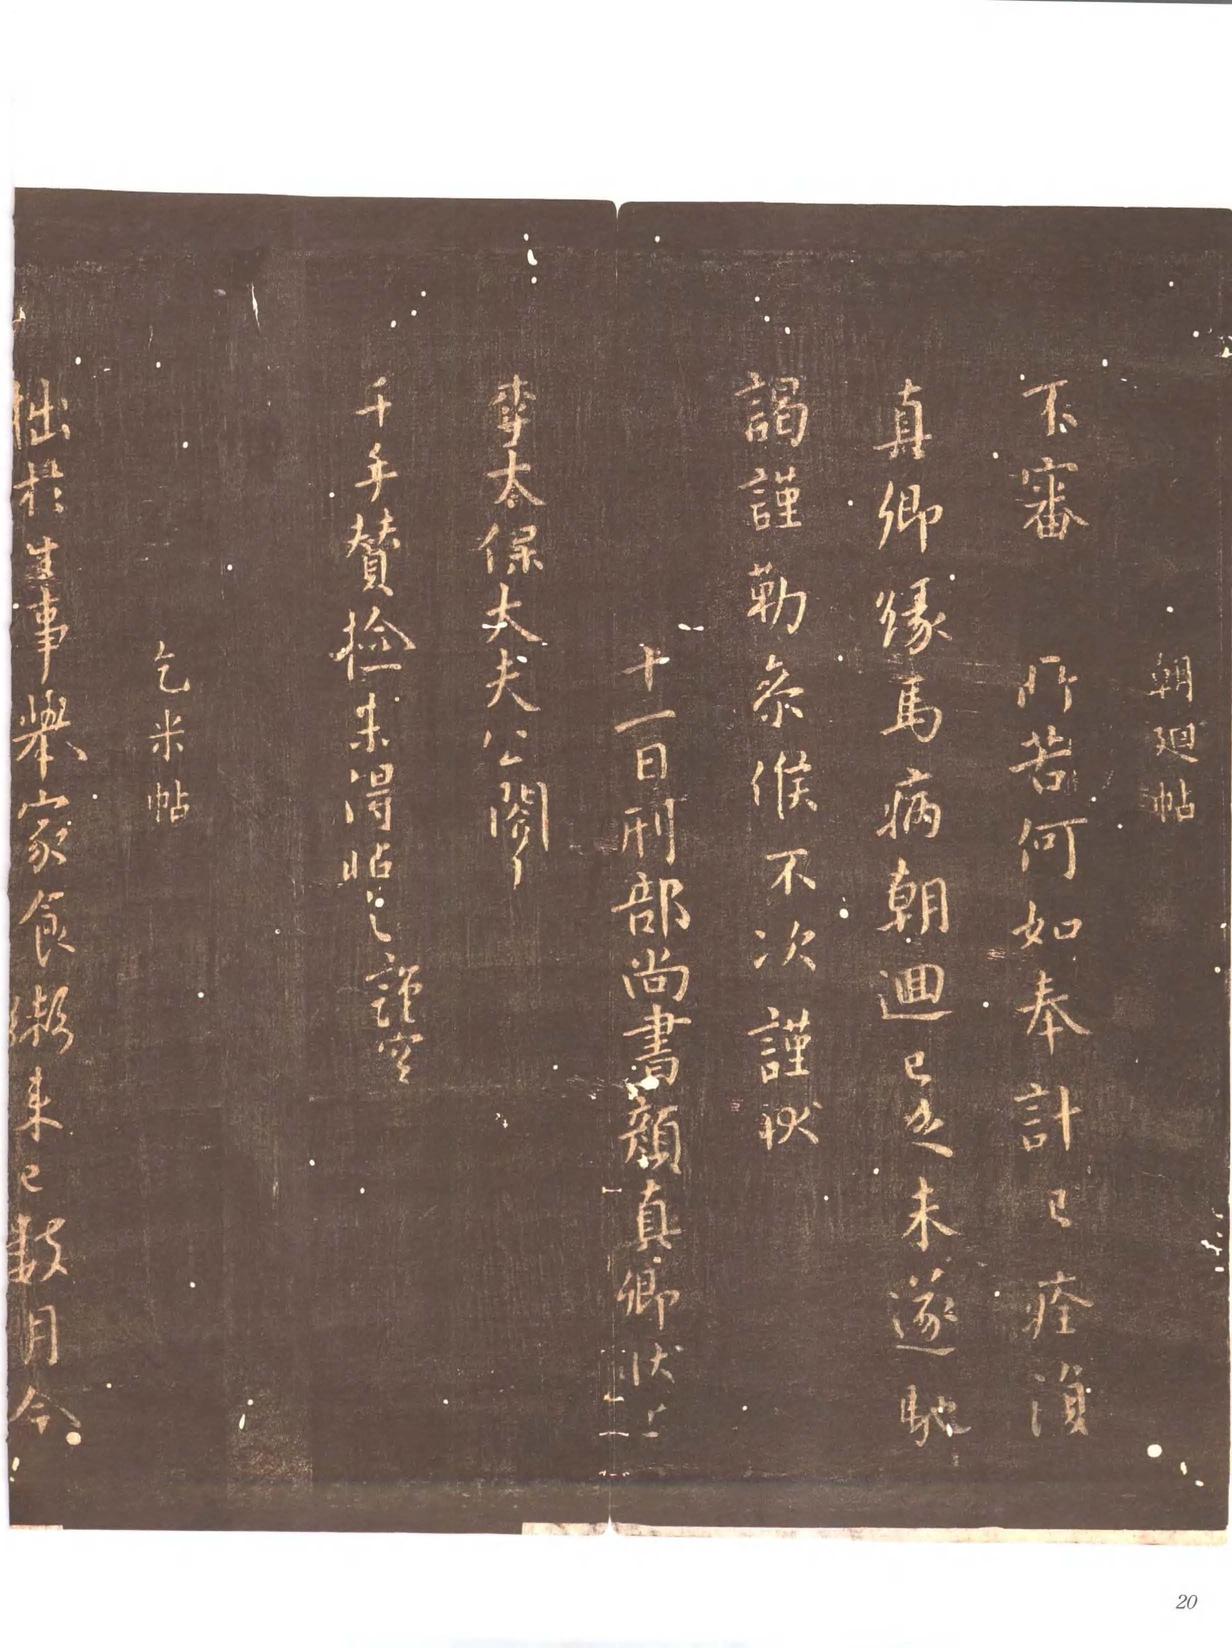 朝迴帖
不審 所苦何如奉計已痊損
真卿緣馬病朝迴已乏未遂馳
謁謹勒參候不次謹狀
十一日刑部尚書顏真卿狀上
李太保大夫公閤下
千手贊檢未得帖之謹空
乞米帖
拙於生事舉家食粥來已數月今
20